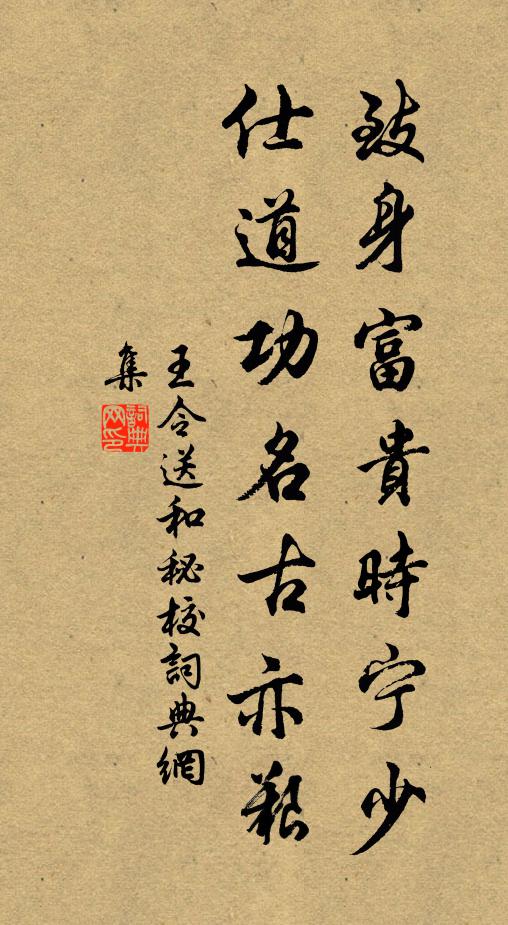 致身富貴時宁少
仕道功名古亦艱
王令送和秘校詞典網
集
詞典网印